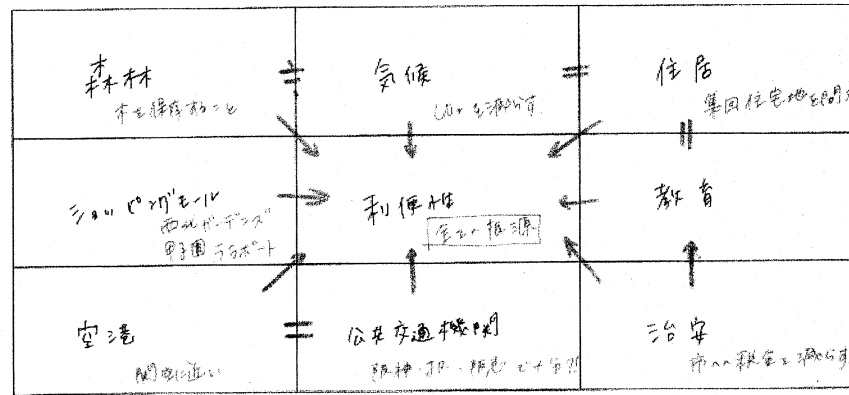 森林
木を保存すること
=
気候
CO₂を減らす
=
住居
集団住宅地を
ショッピングモール
西北ガーデンズ
甲子園ララポート
利便性
全ての根源
教育
空港
関空に近い
=
公共交通機関
阪神・JR・阪急で十分?!
治安
市への税金を減らす